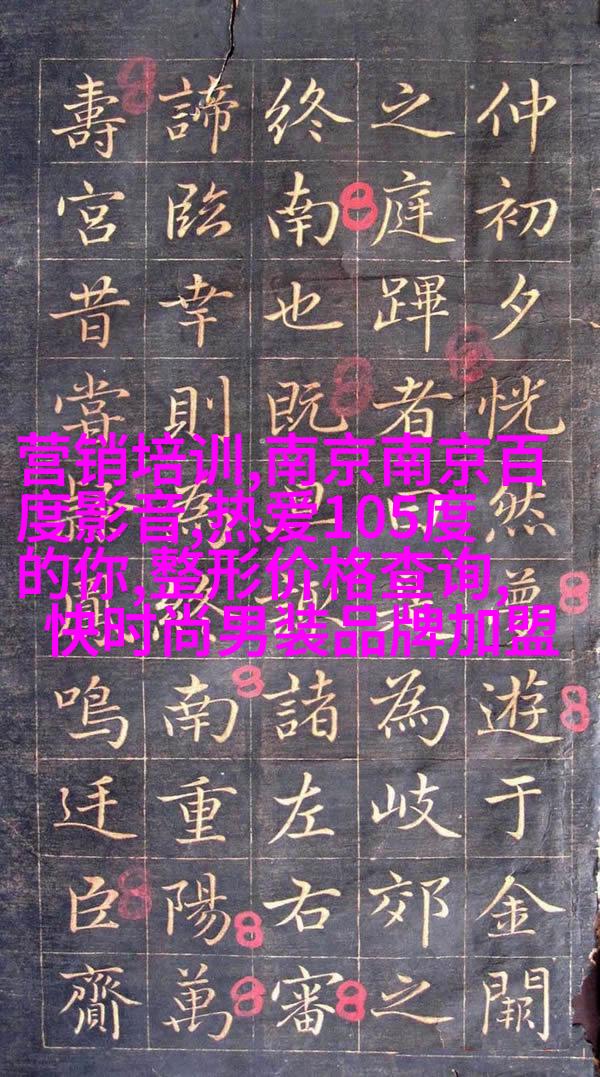 仲初夕恍然夢遊于金闕
之庭蹕者為岐郊之
終南也既諸左右審
諦臨幸則為終南重陽萬
壽宮昔嘗鳴迋臣齎
营销培训,南京南京百
度影音,热爱105度
的你,整形价格查询,
快时尚男装品牌加盟